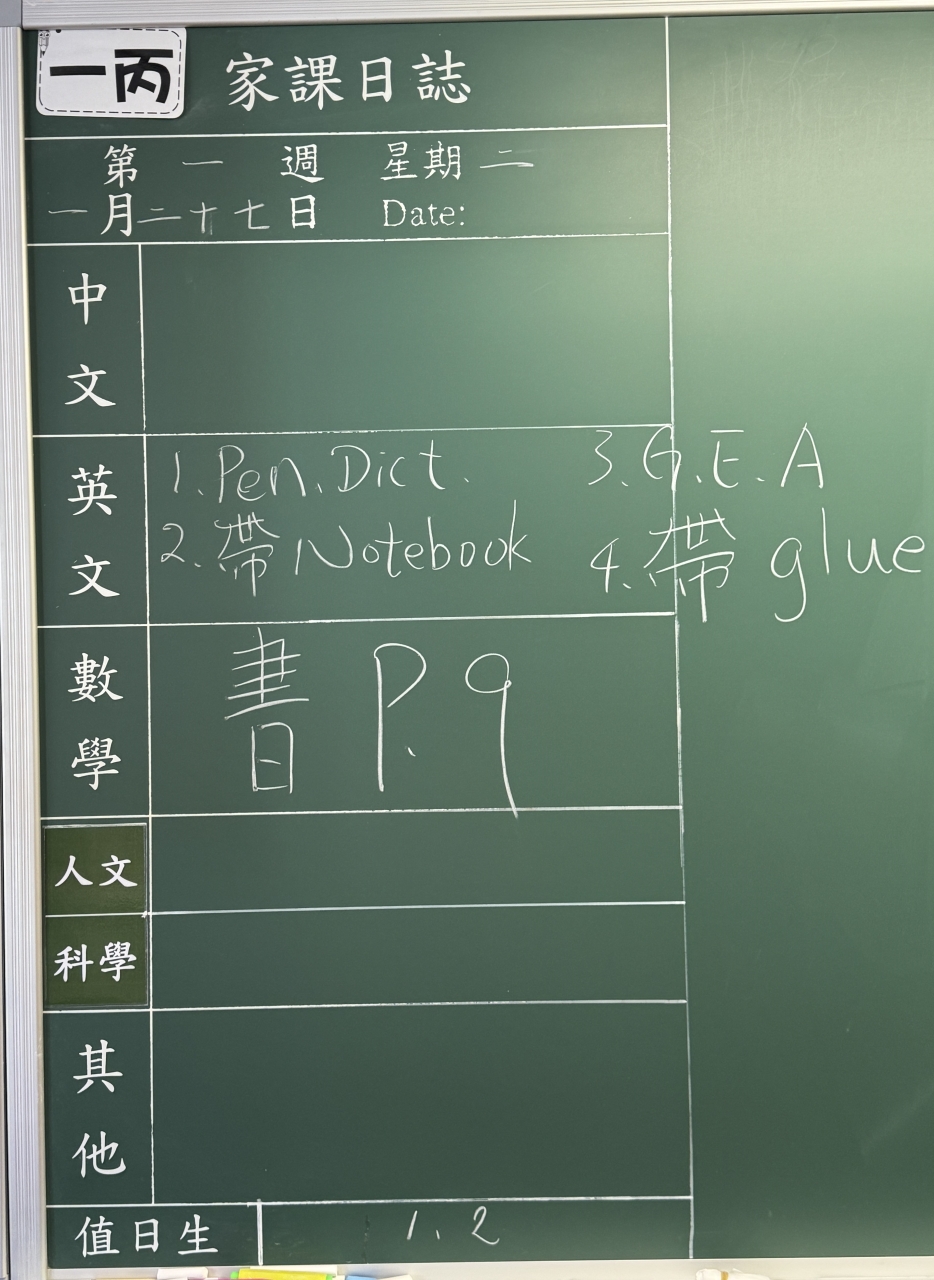 一丙 家課日誌
第 一 週 星期 二
一月二十七日 Date:
中文
英文
1. Pen. Dict. 3. G.E.A
2. 帶 Notebook 4. 帶 glue
數學
書 P.9
人文
科學
其他
值日生 1、2